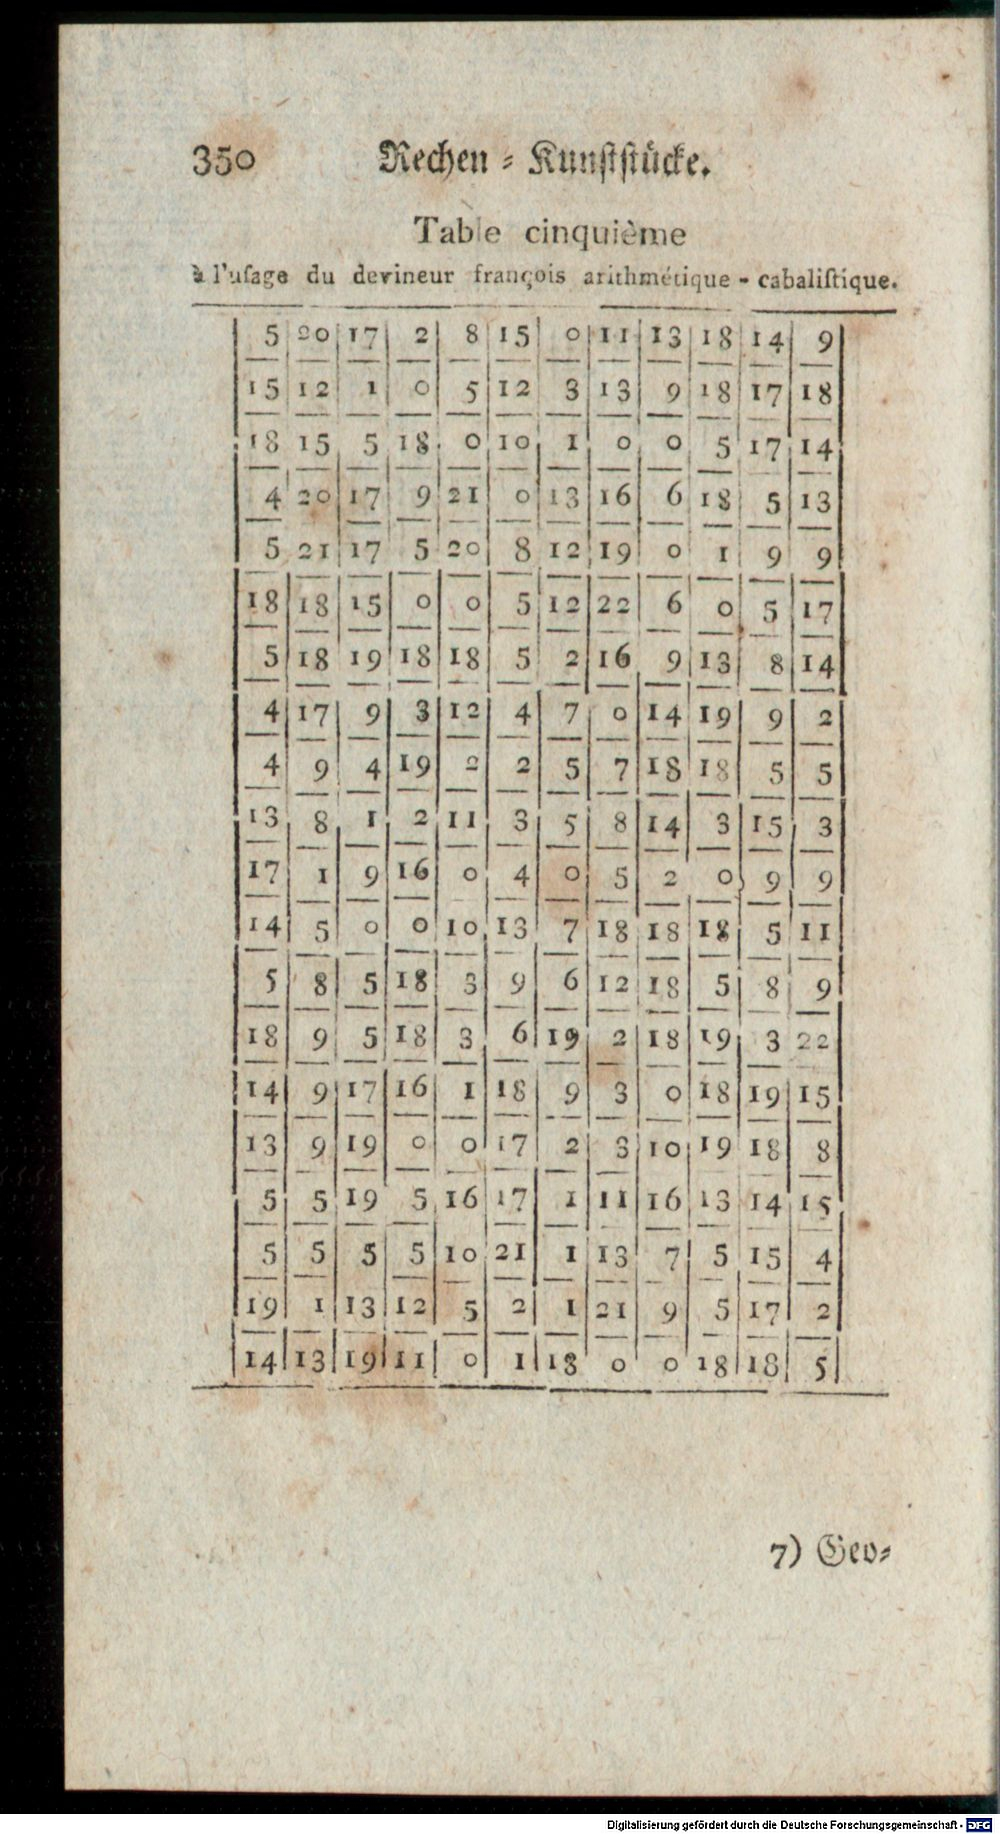 350 Rechen = Kunststücke.
Table cinquième
à l'uſage du devineur françois arithmétique - cabaliſtique.
5 20 17 2 8 15 0 11 13 18 14 9
15 12 1 0 5 12 3 13 9 18 17 18
18 15 5 18 0 10 1 0 0 5 17 14
4 20 17 9 21 0 13 16 6 18 5 13
5 21 17 5 20 8 12 19 0 1 9 9
18 18 15 0 0 5 12 22 6 0 5 17
5 18 19 18 18 5 2 16 9 13 8 14
4 17 9 3 12 4 7 0 14 19 9 2
4 9 4 19 2 2 5 7 18 18 5 5
13 8 1 2 11 3 5 8 14 3 15 3
17 1 9 16 0 4 0 5 2 0 9 9
14 5 0 0 10 13 7 18 18 18 5 11
5 8 5 18 3 9 6 12 18 5 8 9
18 9 5 18 3 6 19 2 18 19 3 22
14 9 17 16 1 18 9 3 0 18 19 15
13 9 19 0 0 17 2 3 10 19 18 8
5 5 19 5 16 17 1 11 16 13 14 15
5 5 5 5 10 21 1 13 7 5 15 4
19 1 13 12 5 2 1 21 9 5 17 2
14 13 19 11 0 1 18 0 0 18 18 5
7) Geo=
Digitalisierung gefördert durch die Deutsche Forschungsgemeinschaft - DFG